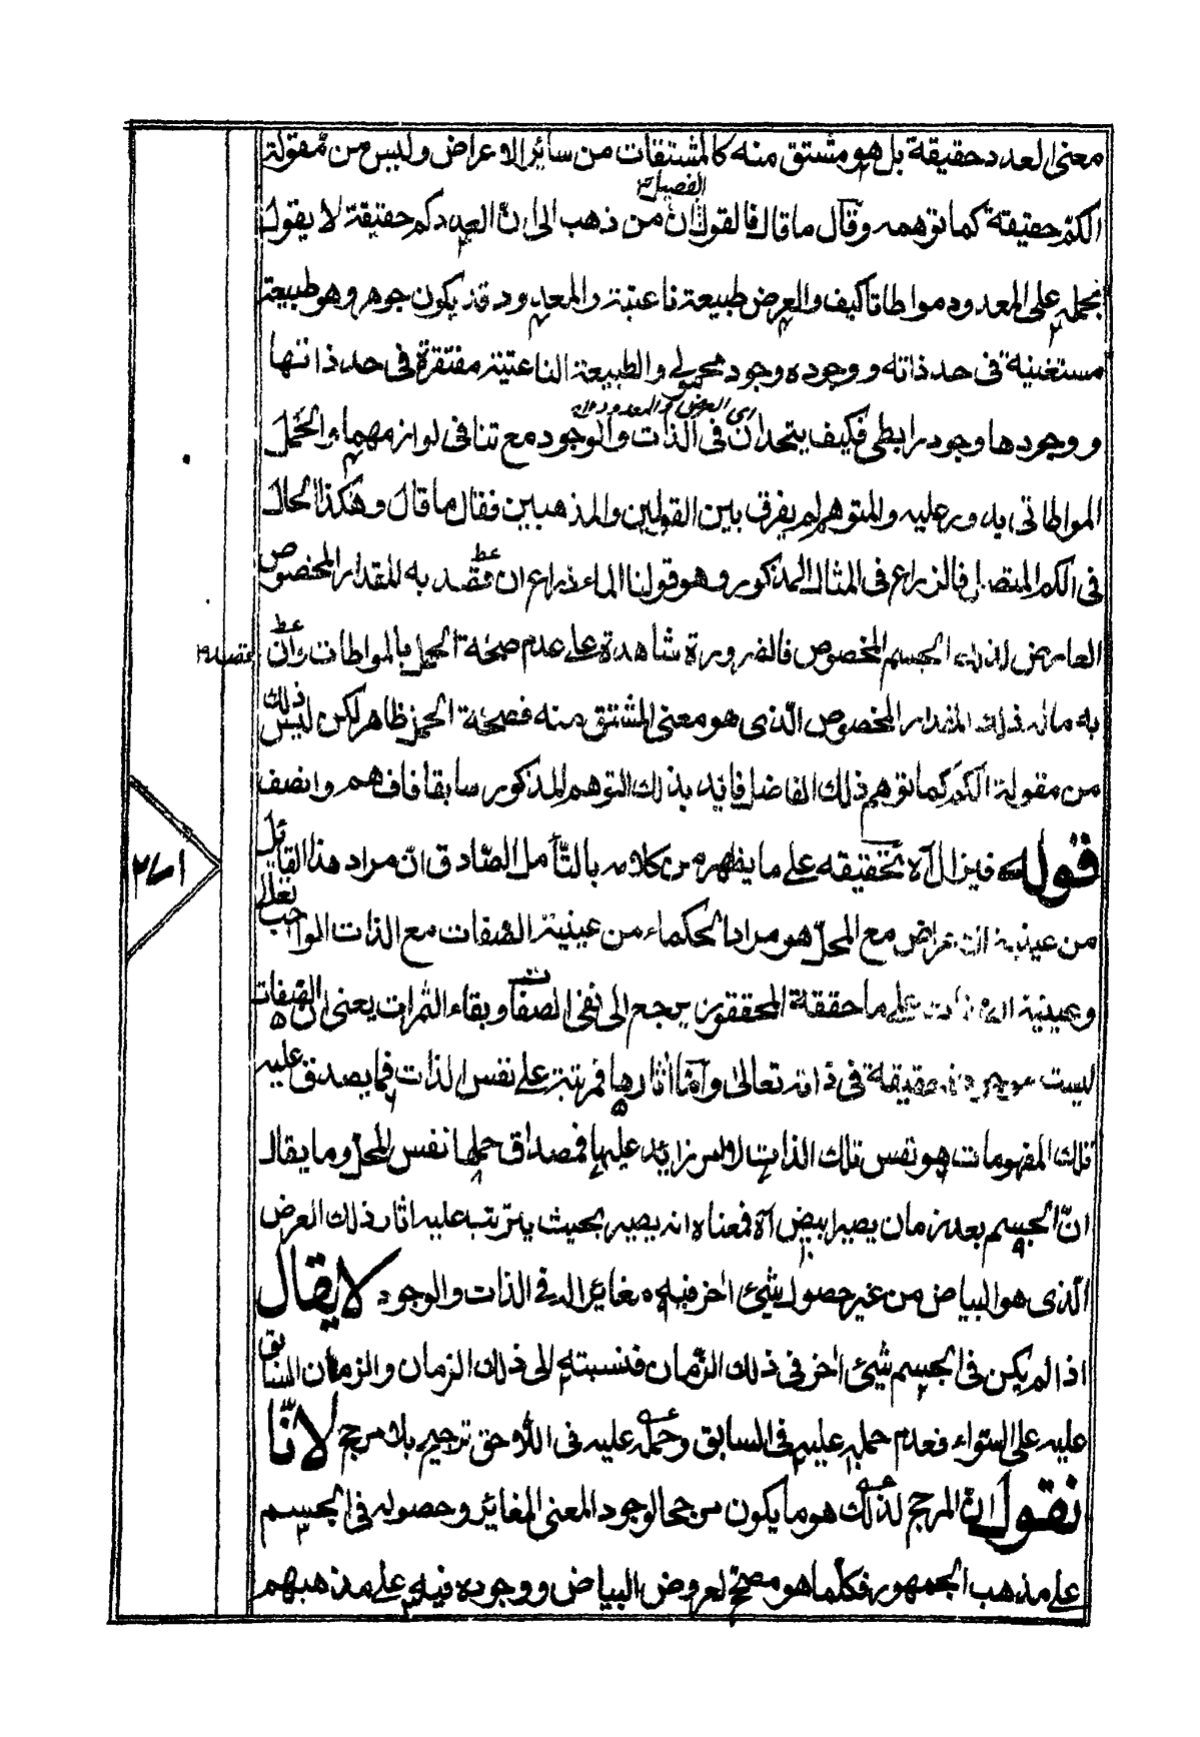 معنى العدد حقيقة بل هو مشتق منه كالمشتقات من سائر الاعراض وليس من مقولة
الكم حقيقة كما توهمه وقال ما قال فالقول ان من ذهب الى ان العدد كم حقيقة لا يقول
الفصيل
بحمله على المعدود مواطاتا كيف والعرض طبيعة ناعتية والمعدود قد يكون جوهر وهو طبيعة
مستغنية فى حد ذاته ووجوده وجود محمولى والطبيعة الناعتية مفتقرة فى حد ذاتها
ووجودها وجود رابطى فكيف يتحدان فى الذات والوجود مع تنافى لوازمهما والحمل
اى العرض والمعدود
المواطاتى يدور عليه والمتوهم لم يفرق بين القولين والمذهبين فقال ما قال وهكذا الحال
فى الكم المتصل فالذراع فى المثال المذكور وهو قولنا الماء ذراع ان قصد به المقدار المخصوص
العارض لذلك الجسم المخصوص فالضرورة شاهدة على عدم صحة الحمل بالمواطات وان قصد
به ماله ذلك المقدار المخصوص الذى هو معنى المشتق منه فصحة الحمل ظاهر لكن ليس ذلك
من مقولة الكم كما توهم ذلك الفاضل فانه بذلك التوهم المذكور سابقا فافهم وانصف
قوله فيزال آه تحقيقه على ما يظهر من كلامه بالتأمل الصادق ان مراد هذا القائل
من عينية الاعراض مع المحل هو مراد الحكماء من عينية الصفات مع الذات الواجب تعالى
وعينية الصفات على ما حققة المحققون يرجع الى نفى الصفات وبقاء الثمرات يعنى ان الصفات
ليست موجودة حقيقة فى ذاته تعالى وآما اثارها فمرتبة على نفس الذات فما يصدق عليه
تلك المفهومات هو نفس تلك الذات لا امر زائد عليها فمصداق حملها نفس المحل وما يقال
ان الجسم بعد زمان يصير ابيض آه فمعناه انه يصير بحيث يترتب عليه اثار ذلك العرض
الذى هو البياض من غير حصول شيئ اخر فيه مغائر له فى الذات والوجود لا يقال
اذا لم يكن فى الجسم شيئ اخر فى ذلك الزمان فنسبته الى ذلك الزمان والزمان السابق
عليه على السواء فعدم حمله عليه فى السابق وحمله عليه فى اللاحق ترجيح بلا مرجح لانا
نقول ان المرجح لذلك هو ما يكون مرجحا لوجود المعنى المغائر وحصوله فى الجسم
على مذهب الجمهور فكلما هو مصحح لعروض البياض ووجوده فيه على مذهبهم